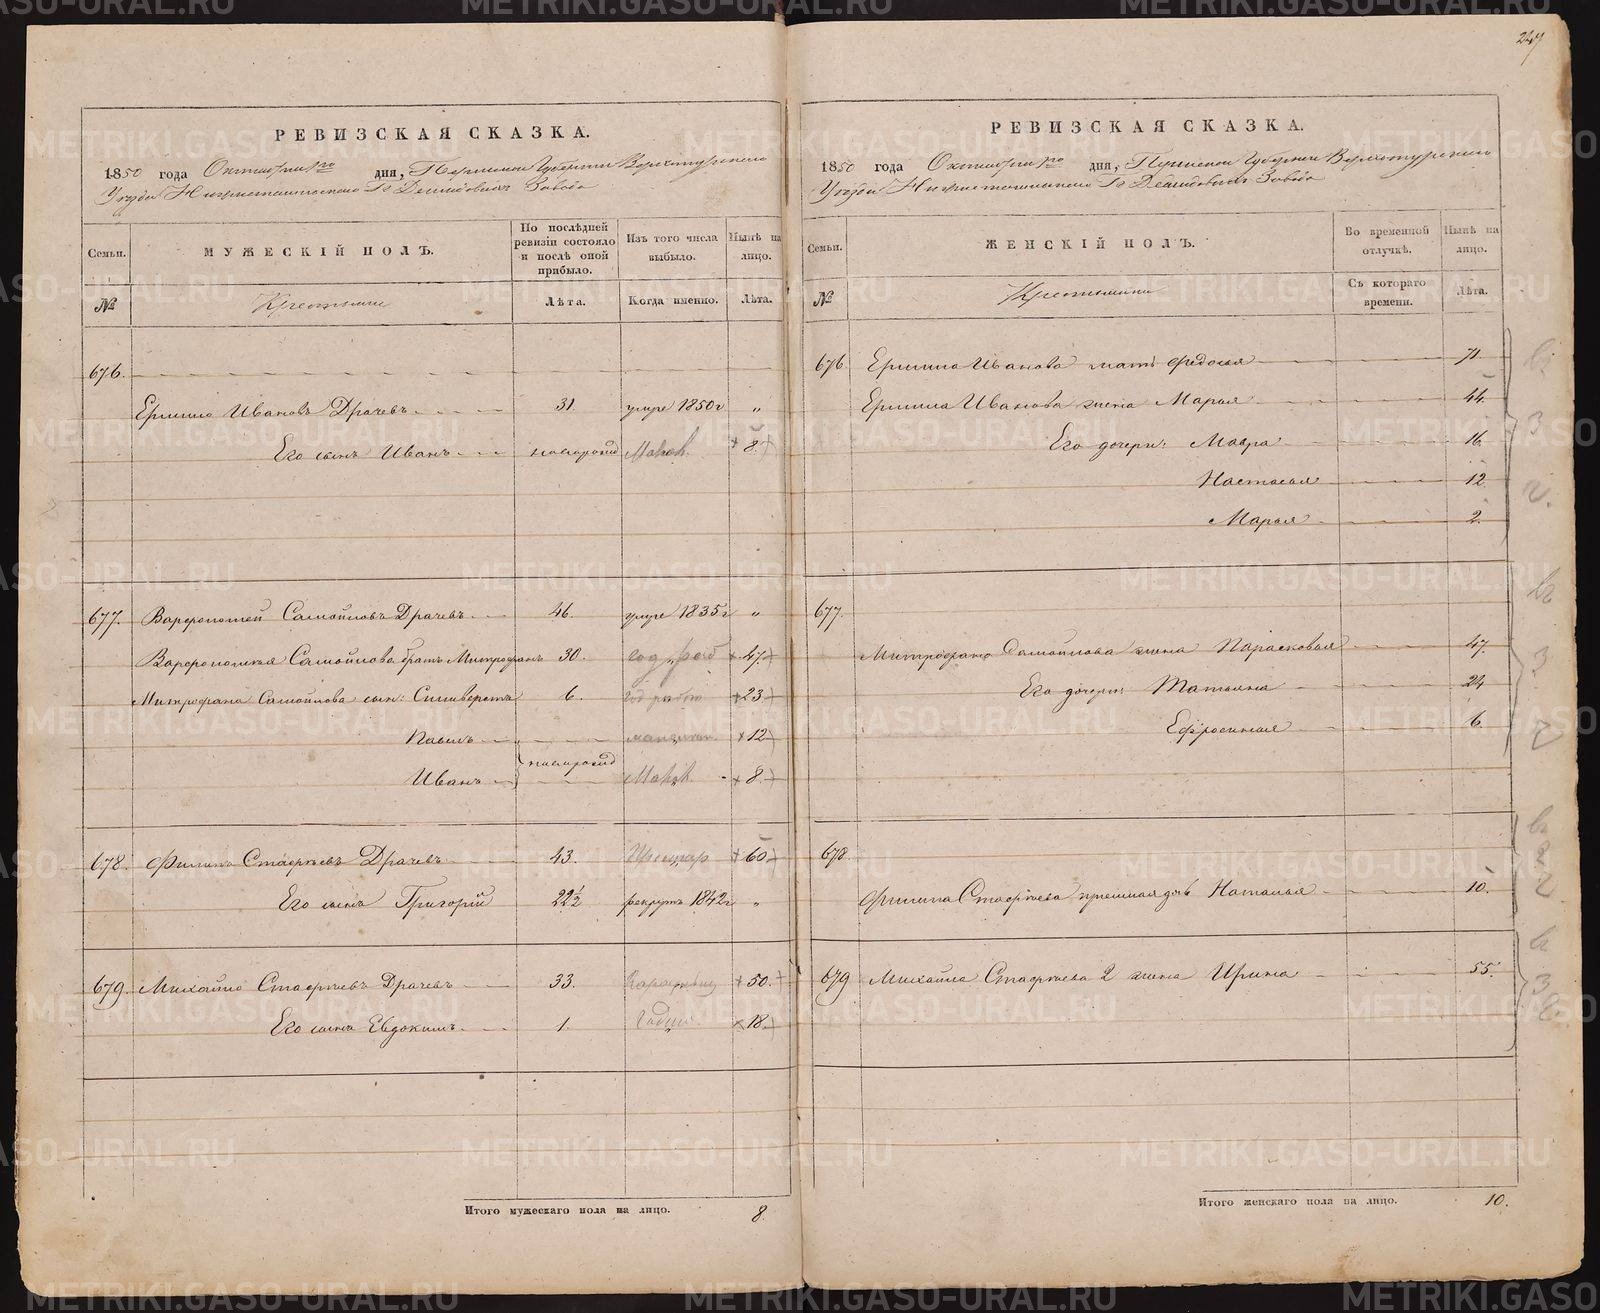 РЕВИЗСКАЯ СКАЗКА.
1850 года Октября дня, Пермской Губернии Верхотурскаго
Уезда Нижнетагильскаго Гг Демидовыхъ Завода
Семьи.
МУЖЕСКІЙ ПОЛЪ.
По послѣдней ревизіи состояло и послѣ оной прибыло.
Изъ того числа выбыло.
Нынѣ на лицо.
№
Крестьяне
Лѣта.
Когда именно.
Лѣта.
676.
Ермило Ивановъ Драчевъ 31. умре 1850 г „
Его сынъ Иванъ новорожд 8.
677. Варфоломей Самойловъ Драчевъ 46. умре 1835 г „
Варфоломея Самойлова братъ Митрофанъ 30. 47.
Митрофана Самойлова сын: Сильверстъ 6. 23
Павелъ 12
новорожд
Иванъ 8.
678. Филипъ Стафѣевъ Драчевъ 43. 60
Его сынъ Григорій 22½ рекрутъ 1842 г „
679. Михайло Стафѣевъ Драчевъ 33. 50.
Его сынъ Евдокимъ 1. 18.
Итого мужескаго пола на лицо. 8.
247
РЕВИЗСКАЯ СКАЗКА.
1850 года Октября дня, Пермской Губерніи Верхотурскаго
Уезда Нижнетагильскаго Гг Демидовыхъ Завода
Семьи.
ЖЕНСКІЙ ПОЛЪ.
Во временной отлучкѣ.
Нынѣ на лицо.
№
Крестьянки
Съ котораго времени.
Лѣта.
676 Ермила Иванова мать Федосья 71.
Ермила Иванова жена Марья 44.
Его дочери: Мавра 16.
Настасья 12
Марья 2.
677.
Митрофана Самойлова жена Парасковья 47.
Его дочери: Татьяна 24
Ефросинья 6.
678.
Филипа Стафѣева Наталья 10.
679 Михайла Стафѣева 2 жена Ирина 55.
Итого женскаго пола на лицо. 10.
METRIKI.GASO-URAL.RU